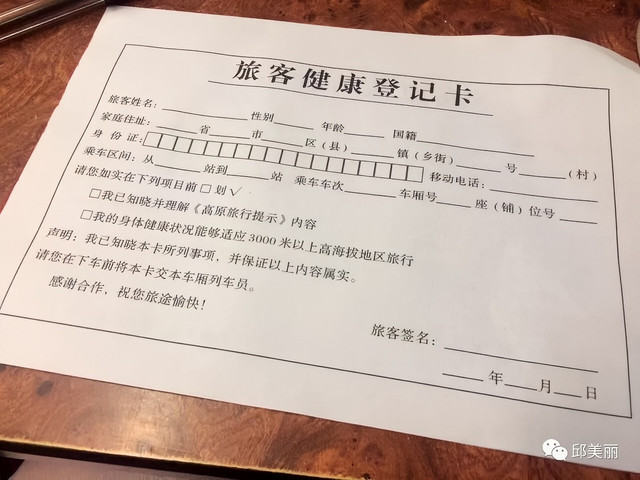 旅客健康登记卡
旅客姓名：________ 性别______ 年龄______ 国籍____________
家庭住址：______省______市______区（县）______镇（乡街）______号______（村）
身份证：□□□□□□□□□□□□□□□□□□ 移动电话：____________
乘车区间：从______站到______站 乘车车次______车厢号____座（铺）位号____
请您如实在下列项目前□划√
□我已知晓并理解《高原旅行提示》内容
□我的身体健康状况能够适应3000米以上高海拔地区旅行
声明：我已知晓本卡所列事项，并保证以上内容属实。
请您在下车前将本卡交本车厢列车员。
感谢合作，祝您旅途愉快！
旅客签名：____________
____年____月____日
邱美丽